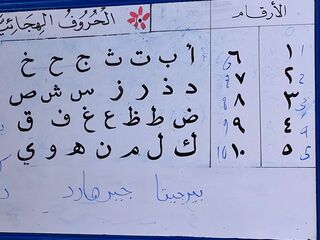 الْحُرُوفُ الْهِجَائِيَّ
أ ب ت ث ج ح خ
د ذ ر ز س ش ص
ض ط ظ ع غ ف ق
ك ل م ن ه و ي
بيرجيتا جيرهارد
الأرقام
١ 1 ٦ 6
٢ 2 ٧ 7
٣ 3 ٨ 8
٤ 4 ٩ 9
٥ 5 ١٠ 10